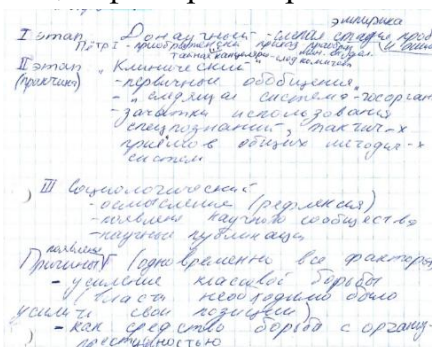 эмпирика
I этап Донаучный - слепая стадия проб и ошиб
Пётр I - преображенский приказ
тайная канцелярия -
II этап "Клинический"
(практики) - первичные обобщения
- "следящая система" - госорган
- зачатки использования
спецпознаний, тактич-х
приёмов в общих методич-х
систем
III Социологический
- осмысление (рефлексия)
- появление научного сообщества
- научные публикации
появления
Причины (одновременно все факторы)
- усиление классовой борьбы
(власти необходимо было
усилить свои позиции)
- как средство борьба с органи-
преступностью